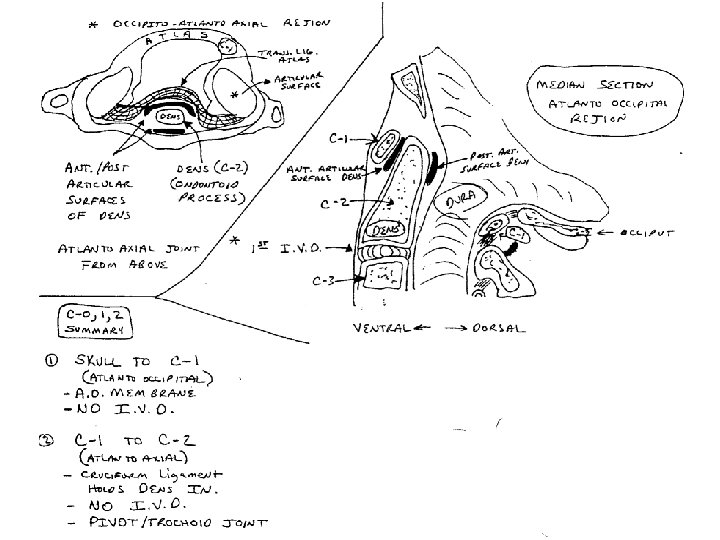 * OCCIPITO-ATLANTO AXIAL REJION
ATLAS
TRANS. LIG.
ATLAS
ARTICULAR
SURFACE
*
DENS
ANT. / POST
ARTICULAR
SURFACES
OF DENS
DENS (C-2)
(ONDONTOID
PROCESS)
ATLANTO AXIAL JOINT
FROM ABOVE
MEDIAN SECTION
ATLANTO OCCIPITAL
REJION
C-1
ANT. ARTICULAR
SURFACE DENS
POST. ART.
SURFACE DENS
C-2
DURA
DENS
C-1
OCCIPUT
* 1ST I.V.D.
C-3
VENTRAL ← → DORSAL
C-0, 1, 2
SUMMARY
① SKULL TO C-1
(ATLANTO OCCIPITAL)
- A.O. MEMBRANE
- NO I.V.D.
② C-1 TO C-2
(ATLANTO AXIAL)
- CRUCIFORM Ligament
HOLDS DENS IN.
- NO I.V.D.
- PIVOT/TROCHOID JOINT